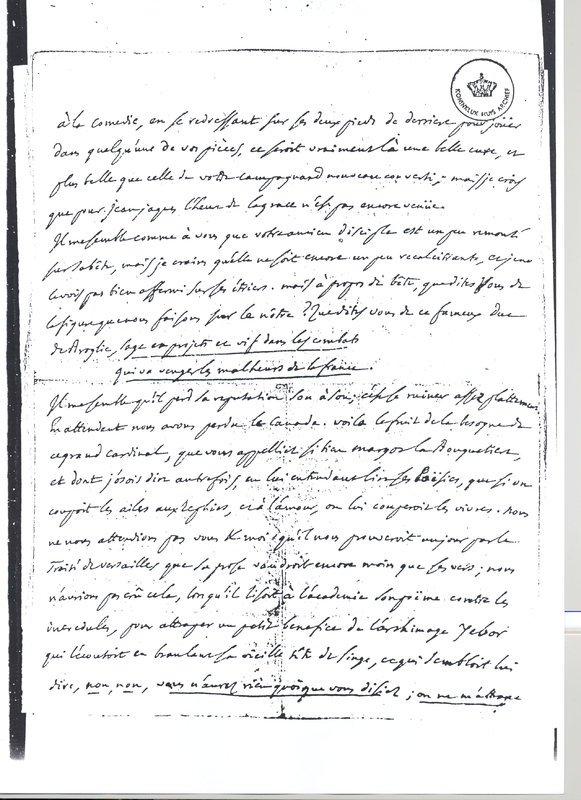 KONINKLIJK HUIS ARCHIEF
à la comedie, en se redressant sur ses deux pieds de derriere pour joüer
dans quelqu'une de vos pieces, ce seroit vraiment là une belle cure, et
plus belle que celle de votre campagnard nouveau converti; mais je crois
que pour Jean jaques l'heure de la grace n'est pas encore venüe.
Il me semble comme à vous que votre ancien disciple est un peu remonté
sur sa bête, mais je crains qu'elle ne soit encore un peu recalcitrante, et je ne
le vois pas bien affermi sur ses étriers. mais à propos de bête, que dites vous de
la figure que nous faisons sur la nôtre? Que dites vous de ce fameux Duc
de Broglie, sage en projets et vif dans les combats
qui va venger les malheurs de la france.
Il me semble qu'il perd sa reputation sou à sou, c'est se ruiner assez platement.
En attendant nous avons perdu le Canada. voilà le fruit de la besogne de
ce grand cardinal, que vous appelliez si bien margot la Bouquetiere,
et dont j'osois dire autrefois, en lui entendant lire ses Poësies, que si on
coupoit les ailes aux Zephirs, et à l'amour, on lui couperoit les vivres. nous
ne nous attendions pas vous et moi qu'il nous prouveroit un jour par le
Traité de versailles que sa prose vaudroit encore moins que ses vers; nous
n'aurions pas crû cela, lorsqu'il lisoit à l'academie son poëme contre les
incredules, pour attraper un petit benefice de l'archimage Yebor
qui l'écoutoit en branlant sa vieille tête de singe, et qui sembloit lui
dire, non, non, vous n'aurez rien quoique vous disiez; on ne m'attrape